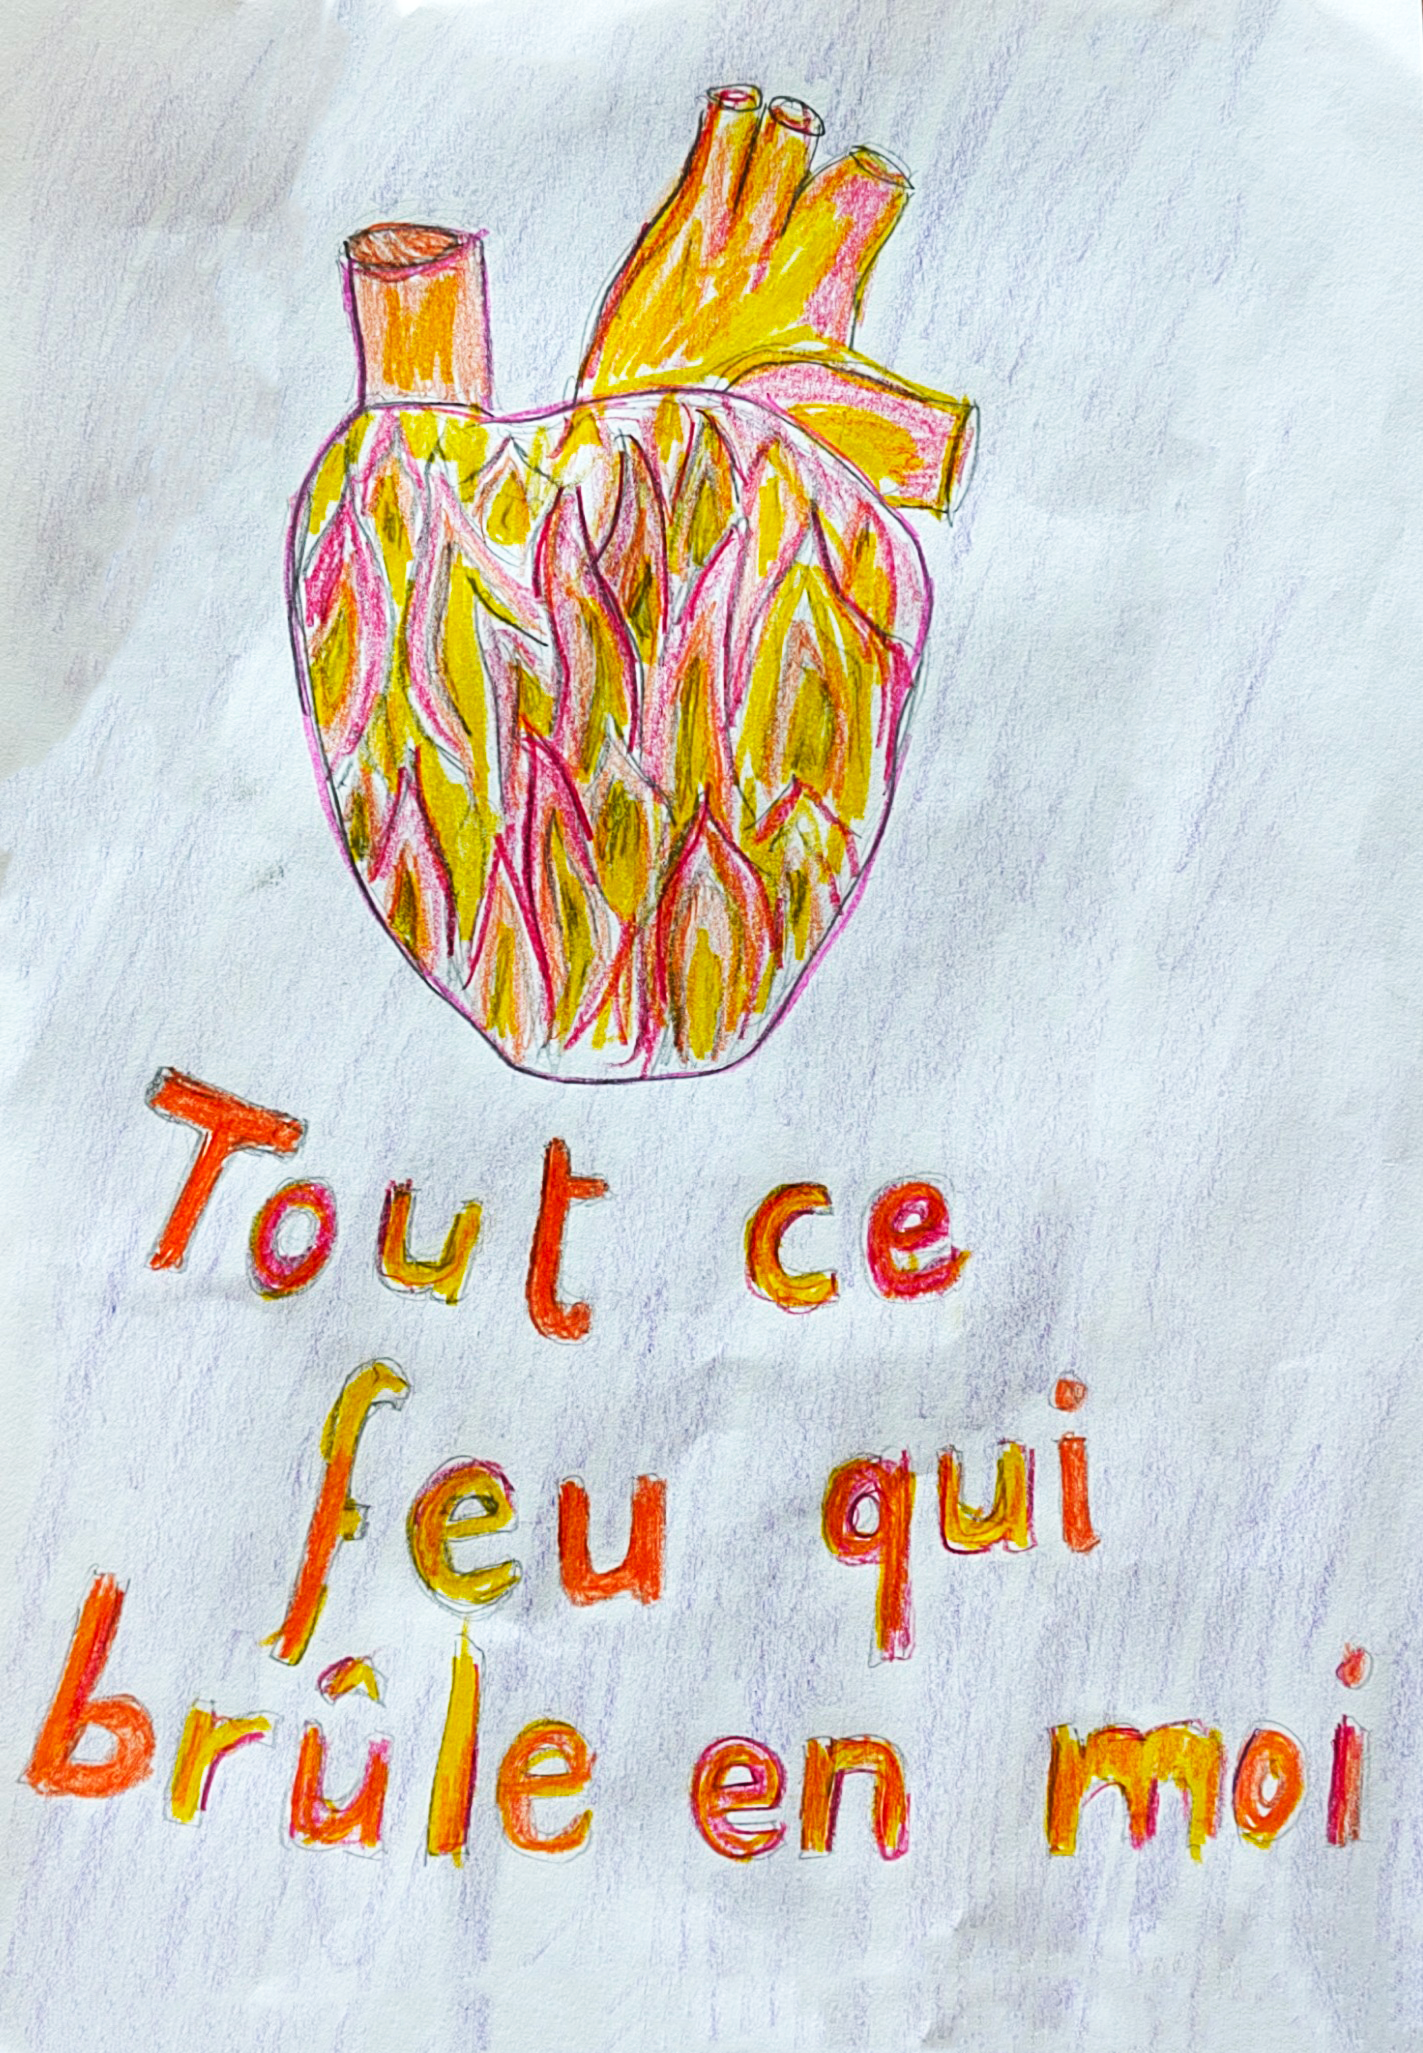 Tout ce
feu qui
brûle en moi